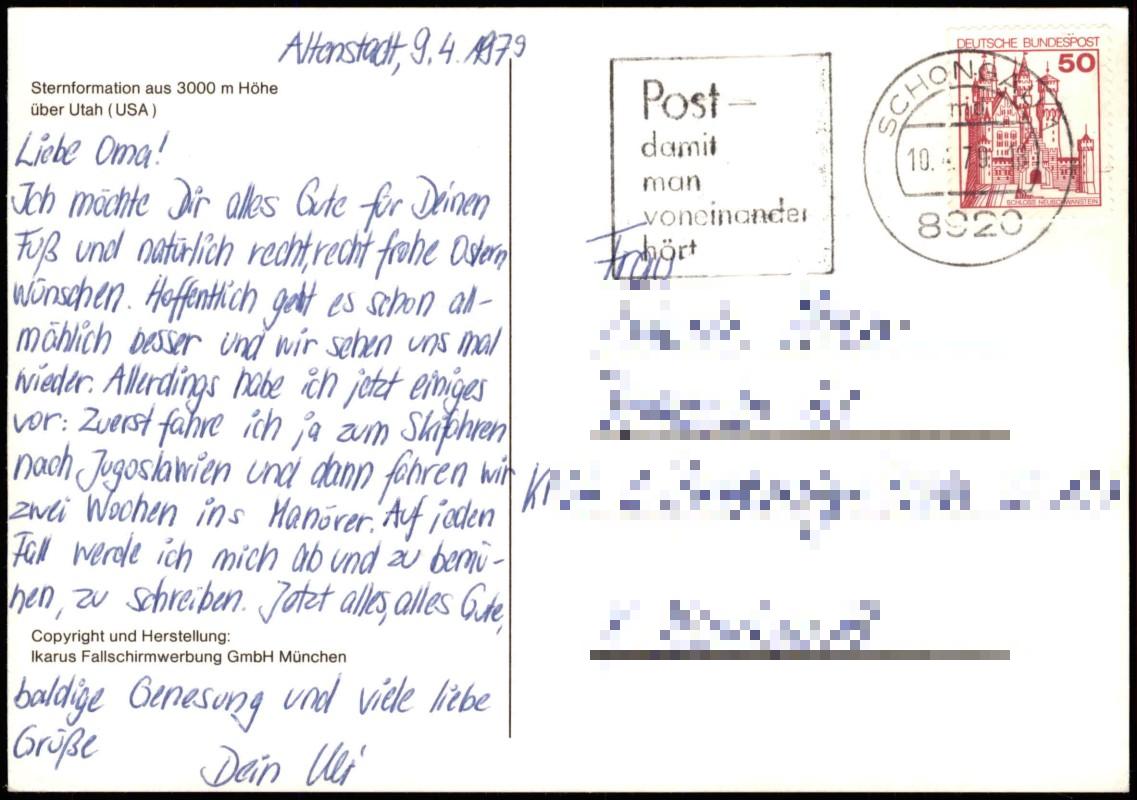 Altenstadt, 9.4.1979
Sternformation aus 3000 m Höhe
über Utah (USA)
Liebe Oma!
Ich möchte Dir alles Gute für Deinen
Fuß und natürlich recht, recht frohe Ostern
wünschen. Hoffentlich geht es schon all-
mählich besser und wir sehen uns mal
wieder. Allerdings habe ich jetzt einiges
vor: Zuerst fahre ich ja zum Skifahren
nach Jugoslawien und dann fahren wir
zwei Wochen ins Manöver. Auf jeden
Fall werde ich mich ab und zu bemü-
hen, zu schreiben. Jetzt alles, alles Gute,
Copyright und Herstellung:
Ikarus Fallschirmwerbung GmbH München
baldige Genesung und viele liebe
Grüße
Dein Uli
Post-
damit
man
voneinander
hört
SCHONGAU
10. 4.79
8920
DEUTSCHE BUNDESPOST
50
SCHLOSS NEUSCHWANSTEIN
Frau